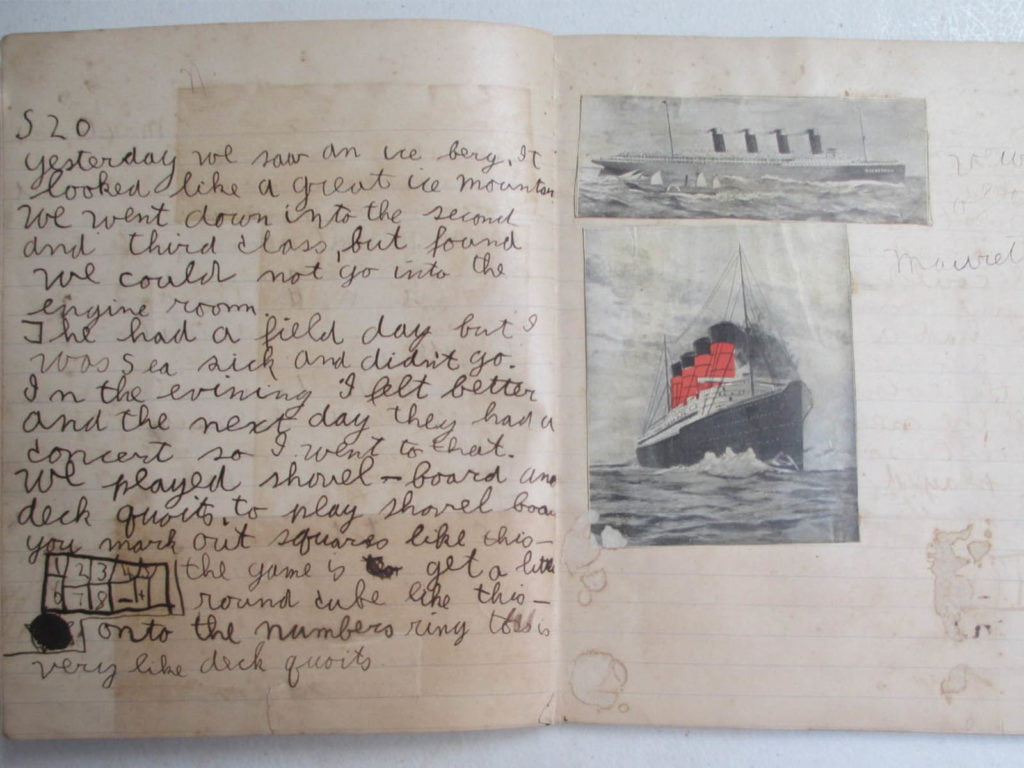 S 20
yesterday we saw an ice berg. It
looked like a great ice mountain
We went down into the second
and third class, but found
we could not go into the
engine room.
The had a field day but I
was sea sick and didn't go.
In the evining I felt better
and the next day they had a
concert so I went to that.
We played shovel-board and
deck quoits. to play shovel boa
you mark out squares like this-
1 2 3
the game is to get a little
6 7 8 - +
round cube like this-
onto the numbers ring toss is
very like deck quoits
Mauret